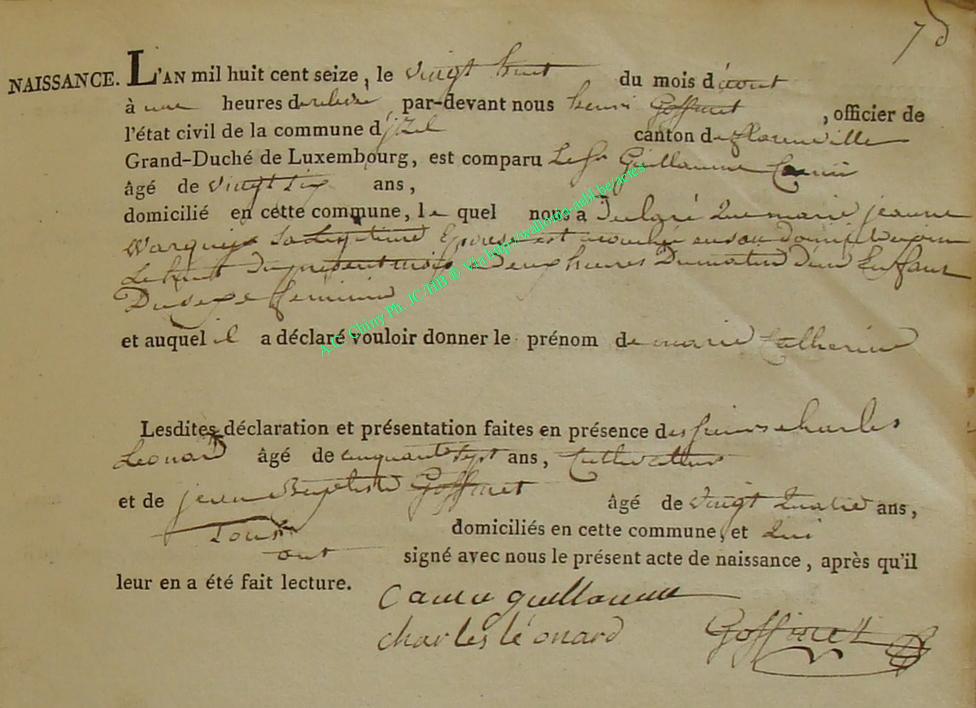 7 d
NAISSANCE. L'AN mil huit cent seize, le vingt huit du mois d'aout
à une heures de relevée par-devant nous henri Goffinet, officier de
l'état civil de la commune d'izel canton de florenville
Grand-Duché de Luxembourg, est comparu Le Sr Guillaume
âgé de vingt six ans,
domicilié en cette commune, le quel nous a Declaré Que marie jeanne
Sa Legitime Epouse est accouchée en son Domicile
Le huit du present mois a Deux heures Du matin D'un Enfant
Du sexe feminin
et auquel il a déclaré vouloir donner le prénom de marie Catherine
Lesdites déclaration et présentation faites en présence des sieurs charles
Leonard âgé de cinquante sept ans, Cultivateur
et de jean Baptiste Goffinet âgé de vingt quatre ans,
Tous domiciliés en cette commune, et qui
ont signé avec nous le présent acte de naissance, après qu'il
leur en a été fait lecture.
guillaume
charles léonard Goffinet